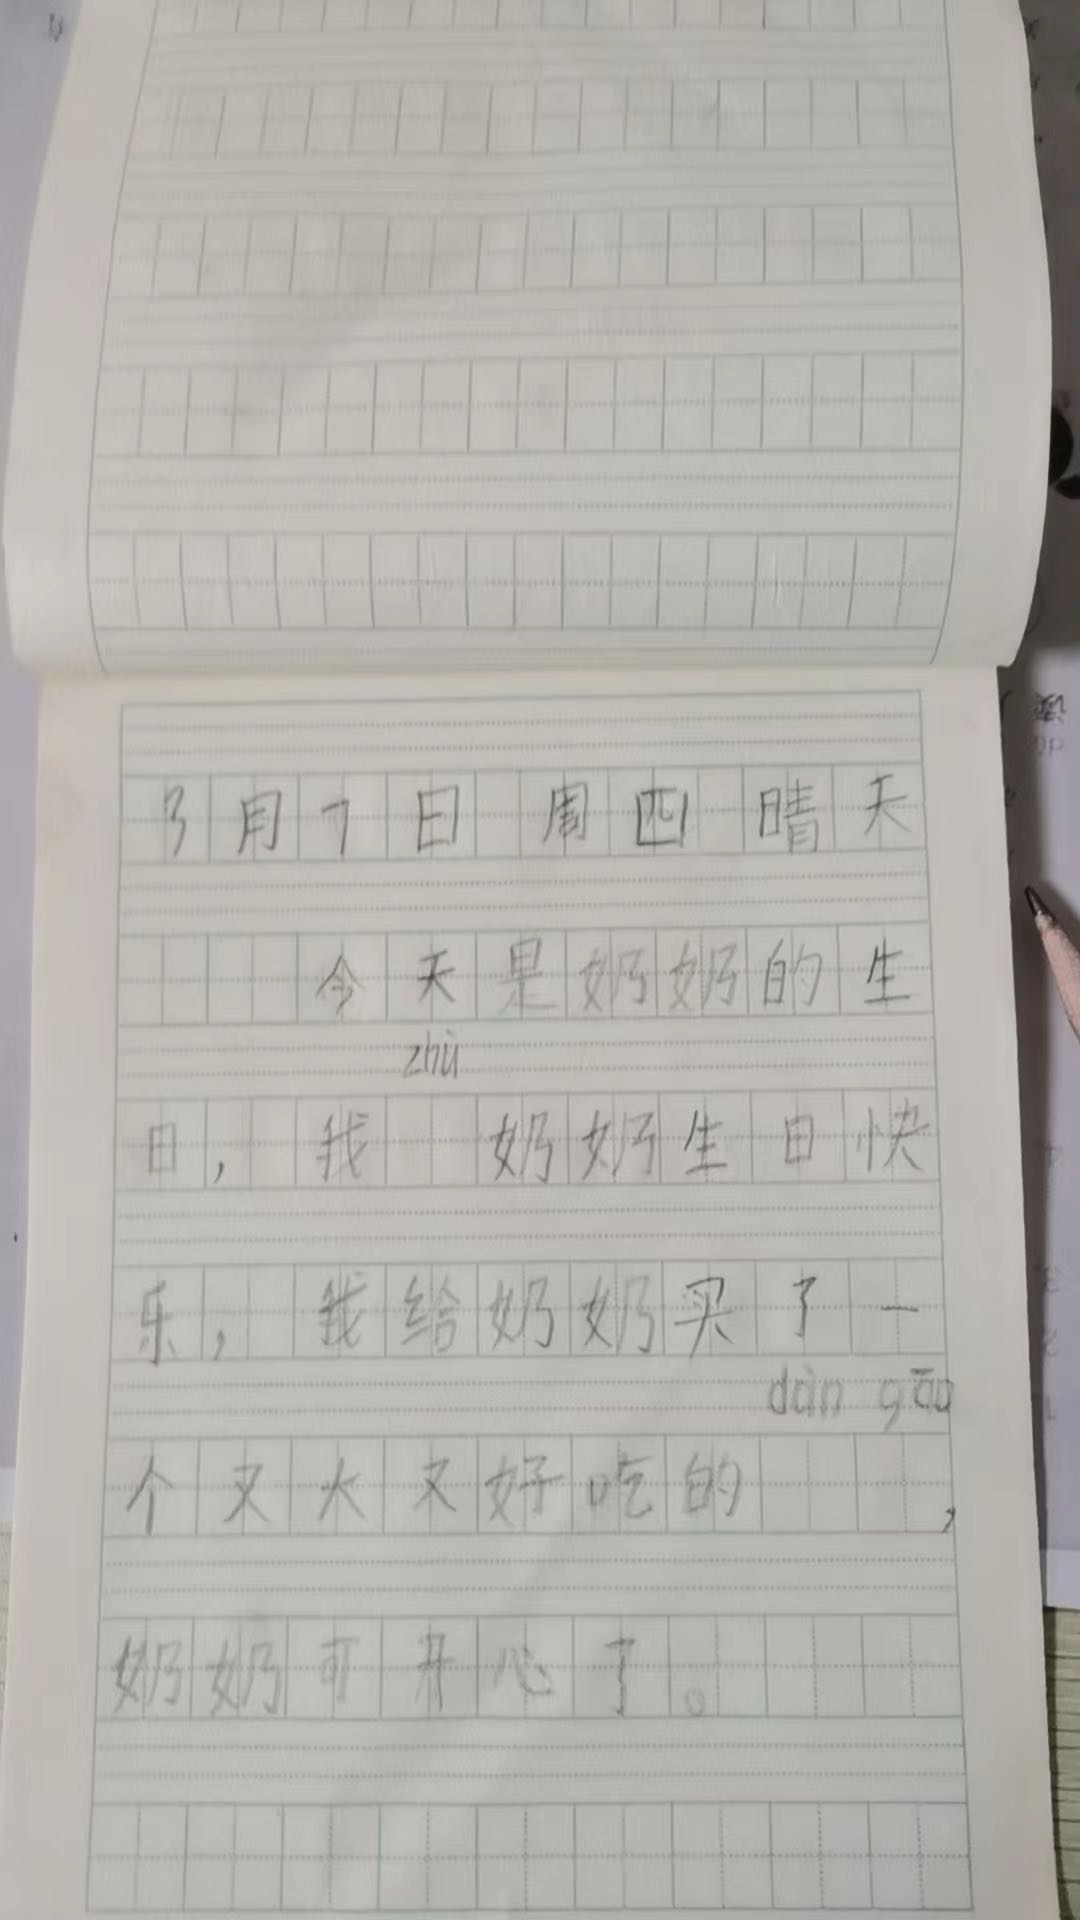 3月7日 周四 晴天
今天是奶奶的生
zhù
日，我 奶奶生日快
乐，我给奶奶买了一
dàn gāo
个又大又好吃的 ，
奶奶可开心了。
读